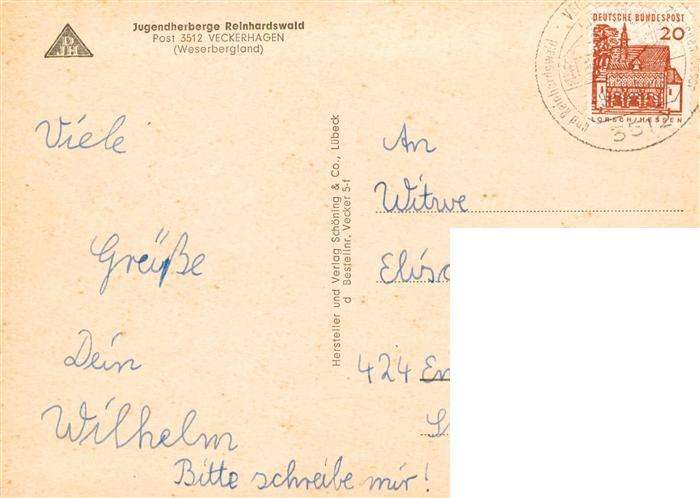 DJH
Jugendherberge Reinhardswald
Post 3512 VECKERHAGEN
(Weserbergland)
Viele
Greüße
Dein
Wilhelm
Bitte schreibe mir!
Hersteller und Verlag Schöning & Co., Lübeck
d Bestellnr. Vecker 5-f
DEUTSCHE BUNDESPOST
20
LORSCH/HESSEN
und Reinhardswald
3512
An
Witwe
424